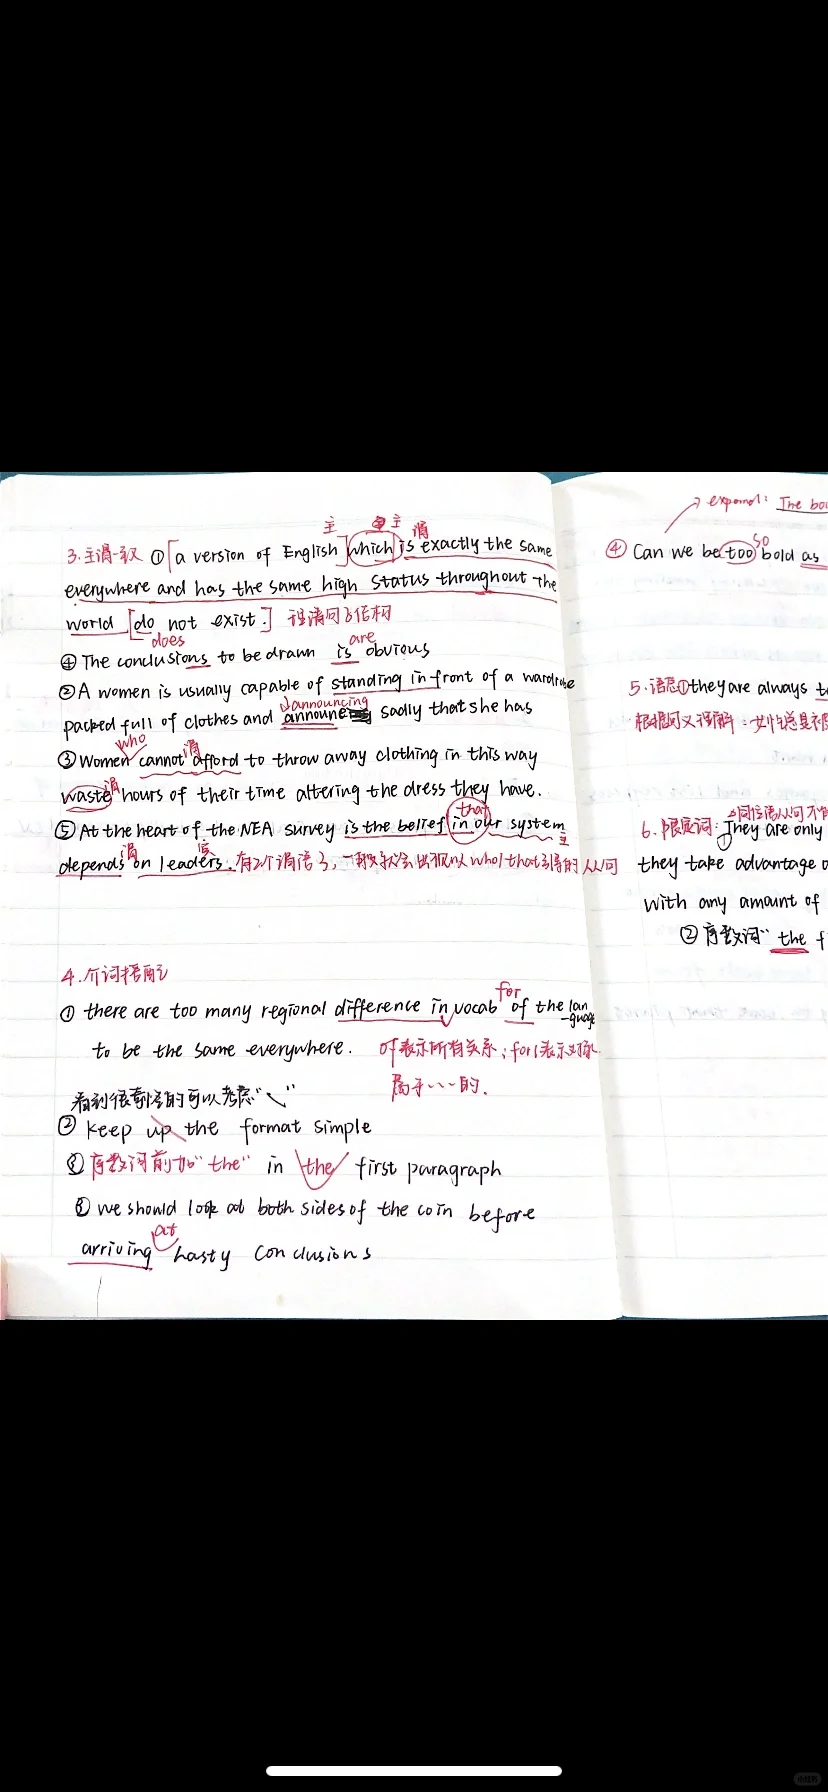 主 主 谓
3.主谓一致 ① [a version of English] which is exactly the same
everywhere and has the same high status throughout the
world [do not exist.] 理清句子结构
does are
④ The conclusions to be drawn is obvious
② A women is usually capable of standing in front of a wardrobe
announcing
packed full of clothes and announe sadly that she has
who 谓
③ Women cannot afford to throw away clothing in this way
谓
waste hours of their time altering the dress they have.
that
⑤ At the heart of the NEA survey is the belief in our system
主
谓 宾
depends on leaders. 有2个谓语了,一般就会出现以who/that引导的从句
4.介词搭配
for
① there are too many regional difference in vocab of the lan
-guage
to be the same everywhere. of表示所有关系;for表示对象
属于……的.
看到很奇怪的可以考虑"\"
② keep up the format simple
② 序数词前加"the" in the first paragraph
③ we should look at both sides of the coin before
at
arriving hasty conclusions
→ expand: The bou
so
④ Can we be too bold as
5.语态①they are always t
根据句义理解:女性总是被
同位语从句不
6.限定词:They are only
①
they take advantage o
with any amount of
② 序数词" the f